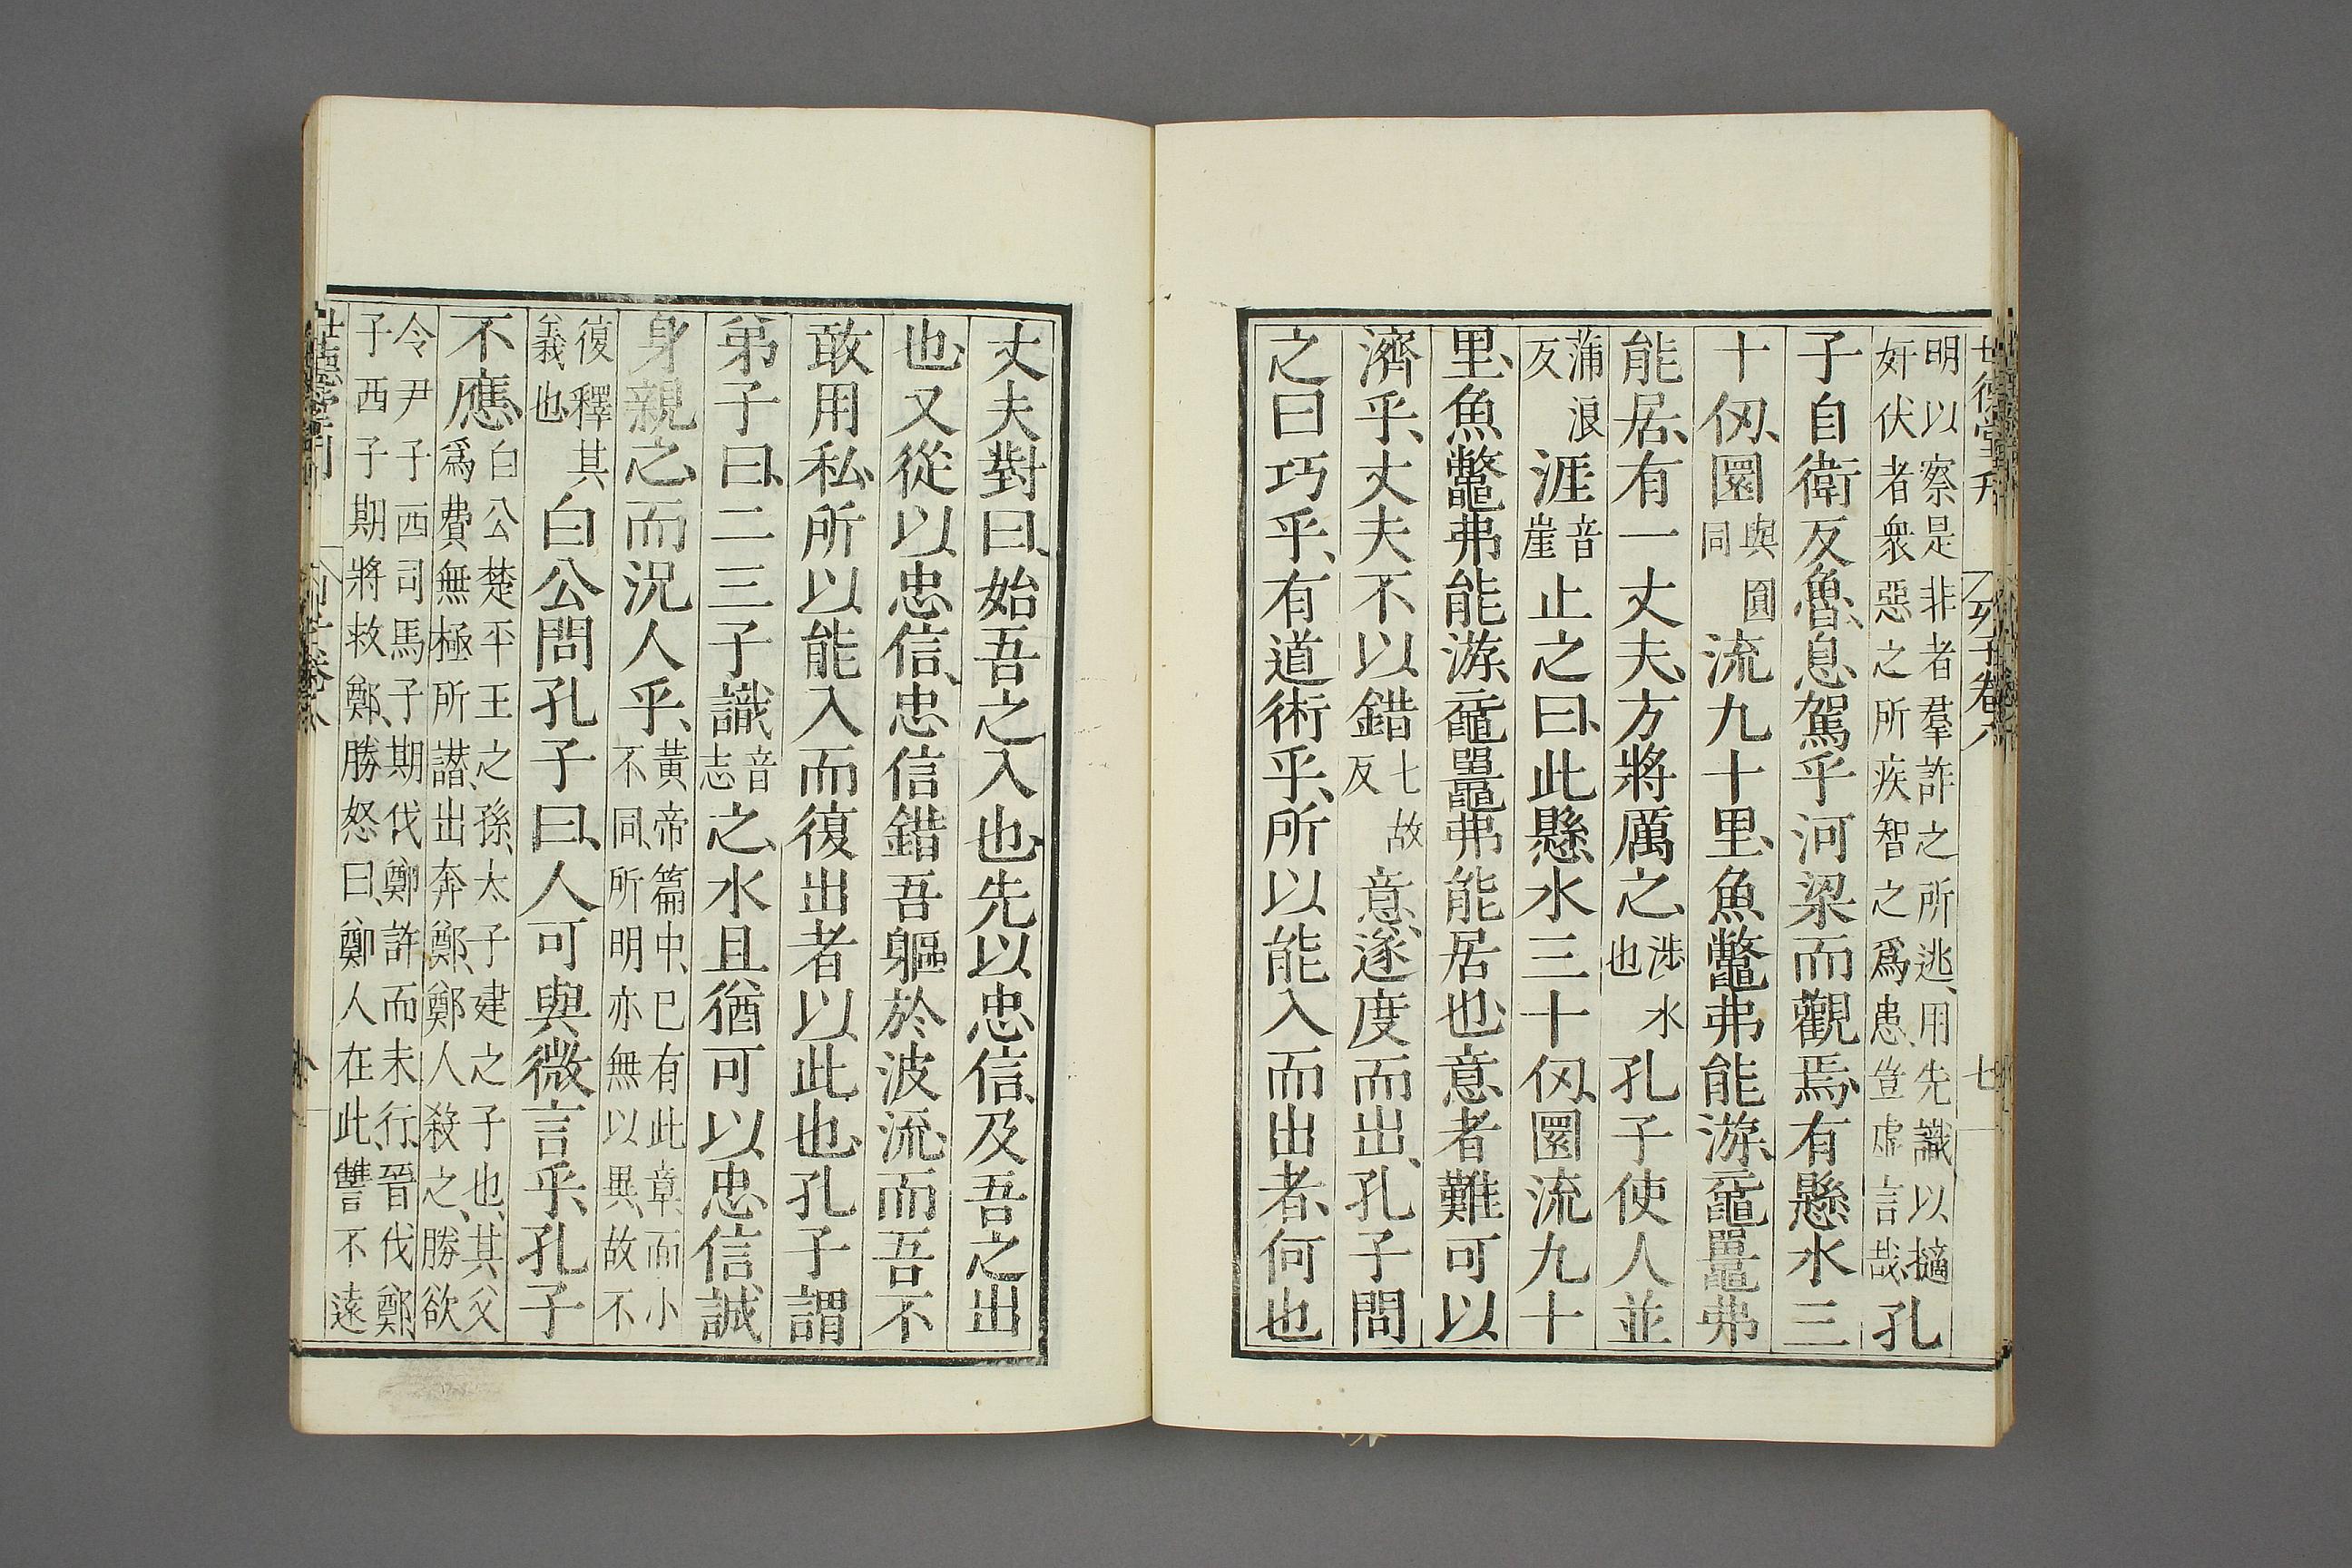 世德堂刊 列子卷八 七
明以察是非者羣詐之所逃、用先識以擿
奸伏者衆惡之所疾智之爲患、豈虛言哉、孔
子自衛反魯、息駕乎河梁而觀焉、有懸水三
十仭、圜與圓同流九十里、魚鼈弗能游、黿鼉弗
能居、有一丈夫、方將厲之、涉水也孔子使人並
蒲浪反涯音崖止之曰、此懸水三十仭、圜流九十
里、魚鼈弗能游、黿鼉弗能居也、意者難可以
濟乎、丈夫不以錯七故反意、遂度而出、孔子問
之曰巧乎、有道術乎、所以能入而出者、何也
丈夫對曰、始吾之入也、先以忠信、及吾之出
也、又從以忠信、忠信錯吾軀於波流、而吾不
敢用私、所以能入而復出者、以此也、孔子謂
弟子曰、二三子識音志之、水且猶可以忠信誠
身親之、而況人乎、黃帝篇中、已有此章而小不同、所明亦無以異、故不
復釋其義也白公問孔子曰、人可與微言乎、孔子
不應、白公楚平王之孫、太子建之子也、其父爲費無極所譖、出奔鄭、鄭人殺之、勝欲
令尹子西司馬子期伐鄭許而未行、晉伐鄭
子西子期將救鄭、勝怒曰、鄭人在此、讐不遠
世德堂刊 卷八